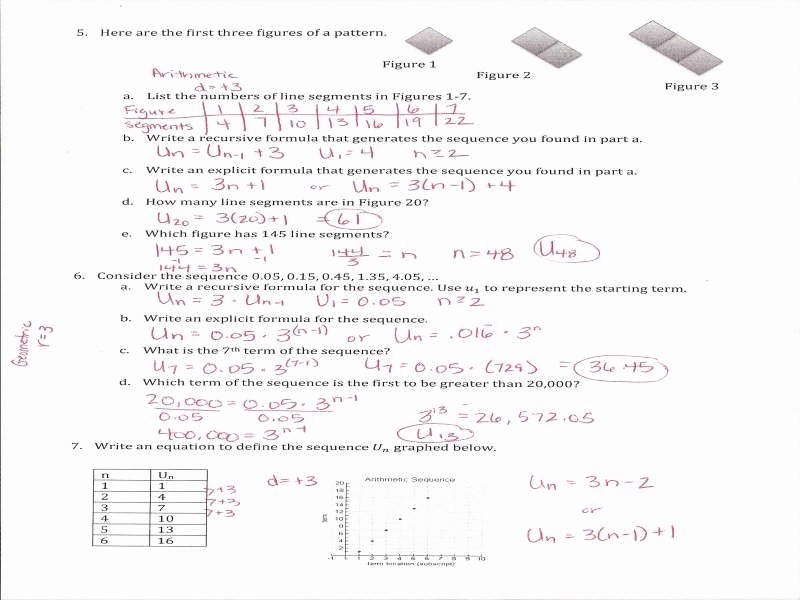 5. Here are the first three figures of a pattern.
Figure 1
Figure 2
Figure 3
Arithmetic
d = +3
a. List the numbers of line segments in Figures 1-7.
Figure 1 2 3 4 5 6 7
Segments 4 7 10 13 16 19 22
b. Write a recursive formula that generates the sequence you found in part a.
Un = Un-1 + 3 U1 = 4 n ≥ 2
c. Write an explicit formula that generates the sequence you found in part a.
Un = 3n + 1 or Un = 3(n-1) + 4
d. How many line segments are in Figure 20?
U20 = 3(20) + 1 = 61
e. Which figure has 145 line segments?
145 = 3n + 1 144/3 = n n = 48 U48
-1 -1
144 = 3n
6. Consider the sequence 0.05, 0.15, 0.45, 1.35, 4.05, ...
a. Write a recursive formula for the sequence. Use u1 to represent the starting term.
Un = 3 · Un-1 U1 = 0.05 n ≥ 2
Geometric
r = 3
b. Write an explicit formula for the sequence.
Un = 0.05 · 3^(n-1) or Un = .016 · 3^n
c. What is the 7th term of the sequence?
U7 = 0.05 · 3^(7-1) U7 = 0.05 · (729) = 36.45
d. Which term of the sequence is the first to be greater than 20,000?
20,000 = 0.05 · 3^n-1
0.05 0.05
3^13 = 26,572.05
400,000 = 3^n-1 U13
7. Write an equation to define the sequence Un graphed below.
n Un
1 1
2 4
3 7
4 10
5 13
6 16
7+3
7+3
7+3
d = +3
Arithmetic Sequence
20
18
16
14
12
10
8
6
4
2
-1 1 2 3 4 5 6 7 8 9 10
term
term location (subscript)
Un = 3n - 2
or
Un = 3(n-1) + 1